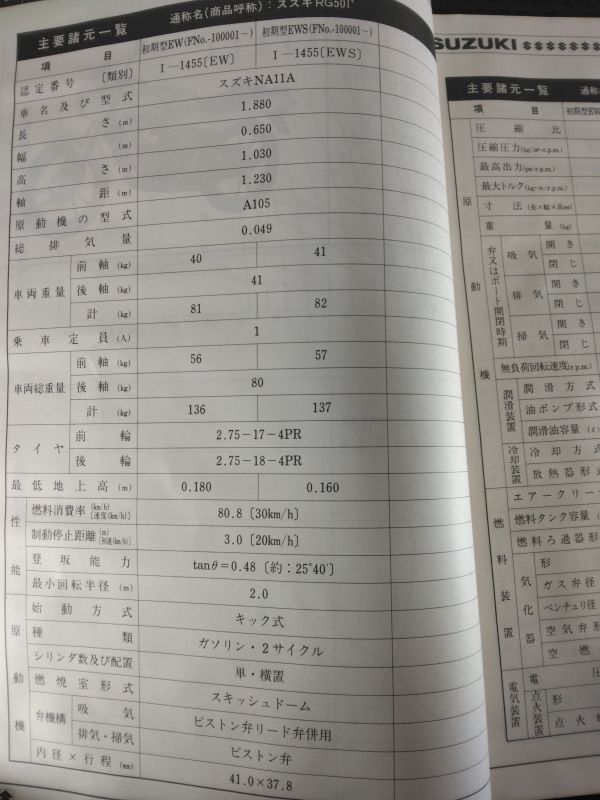 主要諸元一覧 通称名(商品呼称):スズキRG50Γ
項 目 初期型EW(FNo.-100001~) 初期型EWS(FNo.-100001~)
認定番号〔類別〕 I-1455〔EW〕 I-1455〔EWS〕
車名及び型式 スズキNA11A
長さ(m) 1.880
幅(m) 0.650
高さ(m) 1.030
軸距(m) 1.230
原動機の型式 A105
総排気量 0.049
車両重量 前軸(kg) 40 41
後軸(kg) 41
計(kg) 81 82
乗車定員(人) 1
車両総重量 前軸(kg) 56 57
後軸(kg) 80
計(kg) 136 137
タイヤ 前輪 2.75-17-4PR
後輪 2.75-18-4PR
最低地上高(m) 0.180 0.160
性能 燃料消費率(km/ℓ)〔速度(km/h)〕 80.8〔30km/h〕
制動停止距離(m)〔初速(km/h)〕 3.0〔20km/h〕
登坂能力 tanθ=0.48〔約:25°40′〕
最小回転半径(m) 2.0
原動機 始動方式 キック式
種類 ガソリン・2サイクル
シリンダ数及び配置 単・横置
燃焼室形式 スキッシュドーム
弁機構 吸気 ピストン弁リード弁併用
排気・掃気 ピストン弁
内径×行程(mm) 41.0×37.8
SUZUKI
主要諸元一覧 通称
項 目 初期型EW
原動機 圧縮比
圧縮圧力(kg/㎠-r.p.m.)
最高出力(ps/r.p.m.)
最大トルク(kg・m/r.p.m.)
寸法(長×幅×高mm)
重量(kg)
弁又はポート開閉時期 吸気 開き
閉じ
排気 開き
閉じ
掃気 開き
閉じ
無負荷回転速度(r.p.m.)
潤滑装置 潤滑方式
油ポンプ形式
潤滑油容量(ℓ)
冷却装置 冷却方式
放熱器形式
燃料装置 エアークリー
燃料タンク容量
燃料ろ過器形
気化器 形
ガス弁径
ベンチュリ径
空気弁形
空燃
電気装置 電圧
点火装置 形
点火時